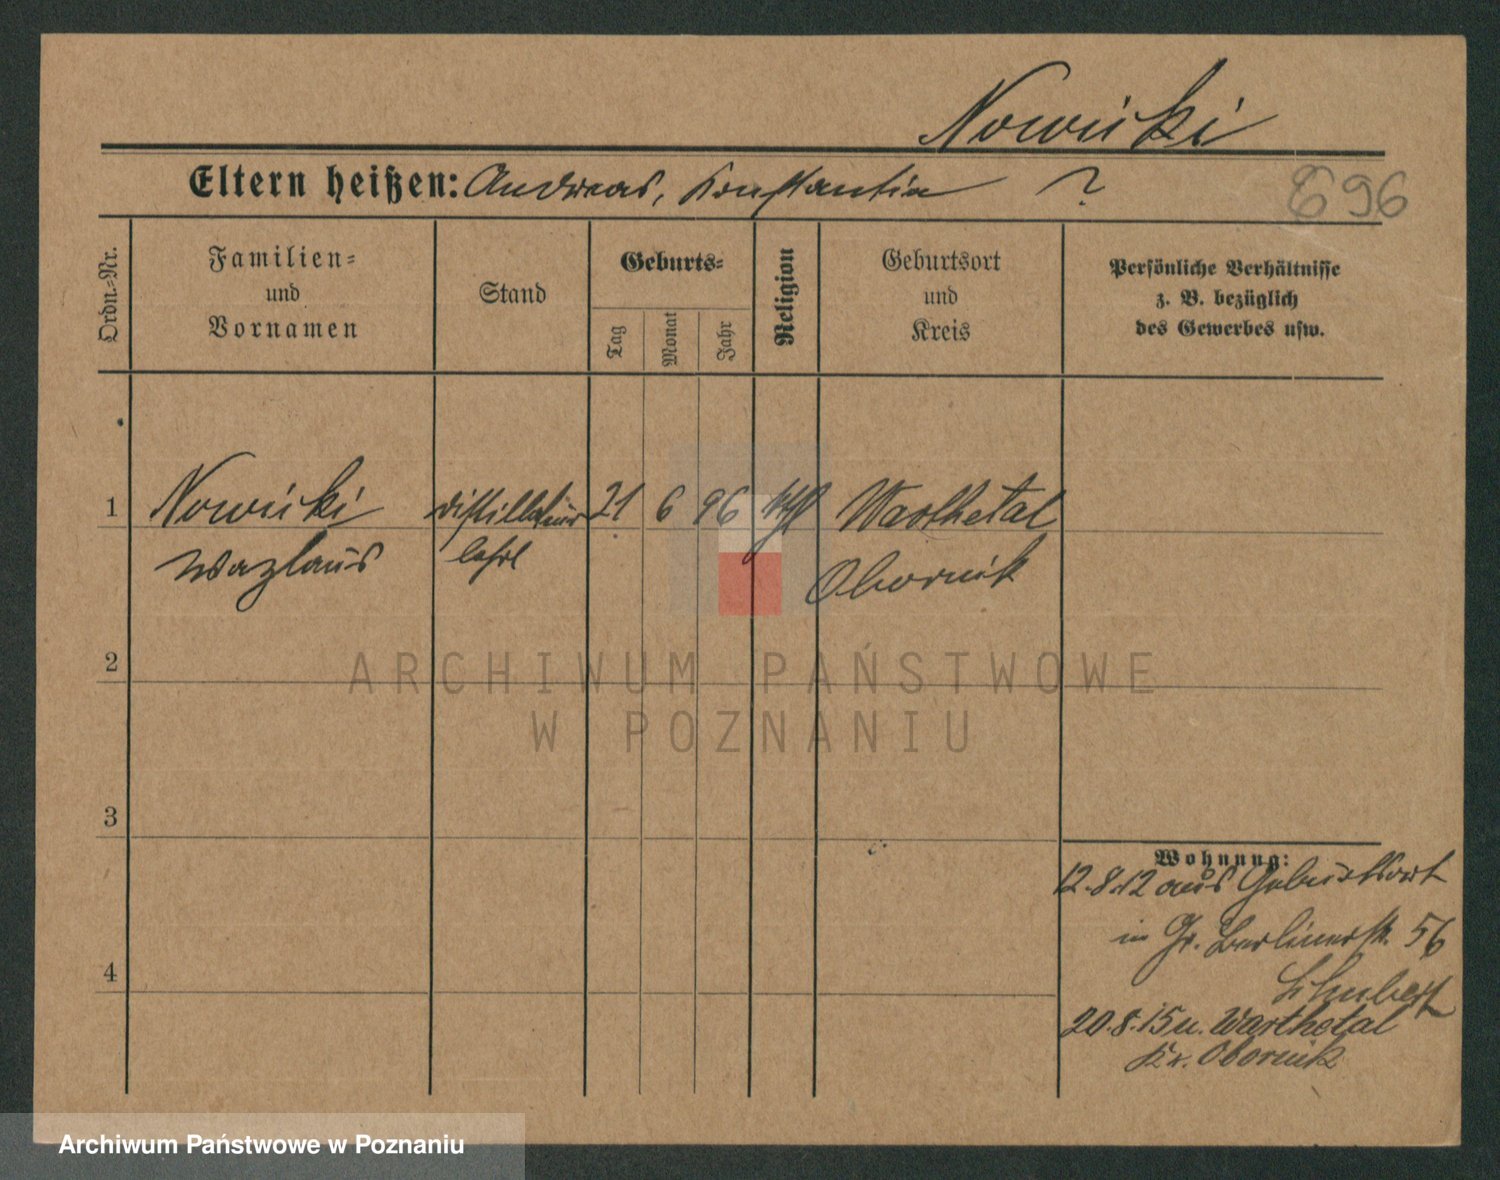 Nowicki
Eltern heißen: Andreas, Konstantia ?
E 96
Ordn.-Nr.
Familien-
und
Vornamen
Stand
Geburts-
Tag
Monat
Jahr
Religion
Geburtsort
und
Kreis
Persönliche Verhältnisse
z. B. bezüglich
des Gewerbes usw.
1
Nowicki
Wazlaus
distillateur
lehrl
21
6
96
kth
Warthetal
Obornik
2
3
4
Wohnung:
12.8.12 aus Geburtsort
in Gr. Berlinerstr. 56
20.8.15 n. Warthetal
Kr. Obornik
ARCHIWUM PAŃSTWOWE
W POZNANIU
Archiwum Państwowe w Poznaniu